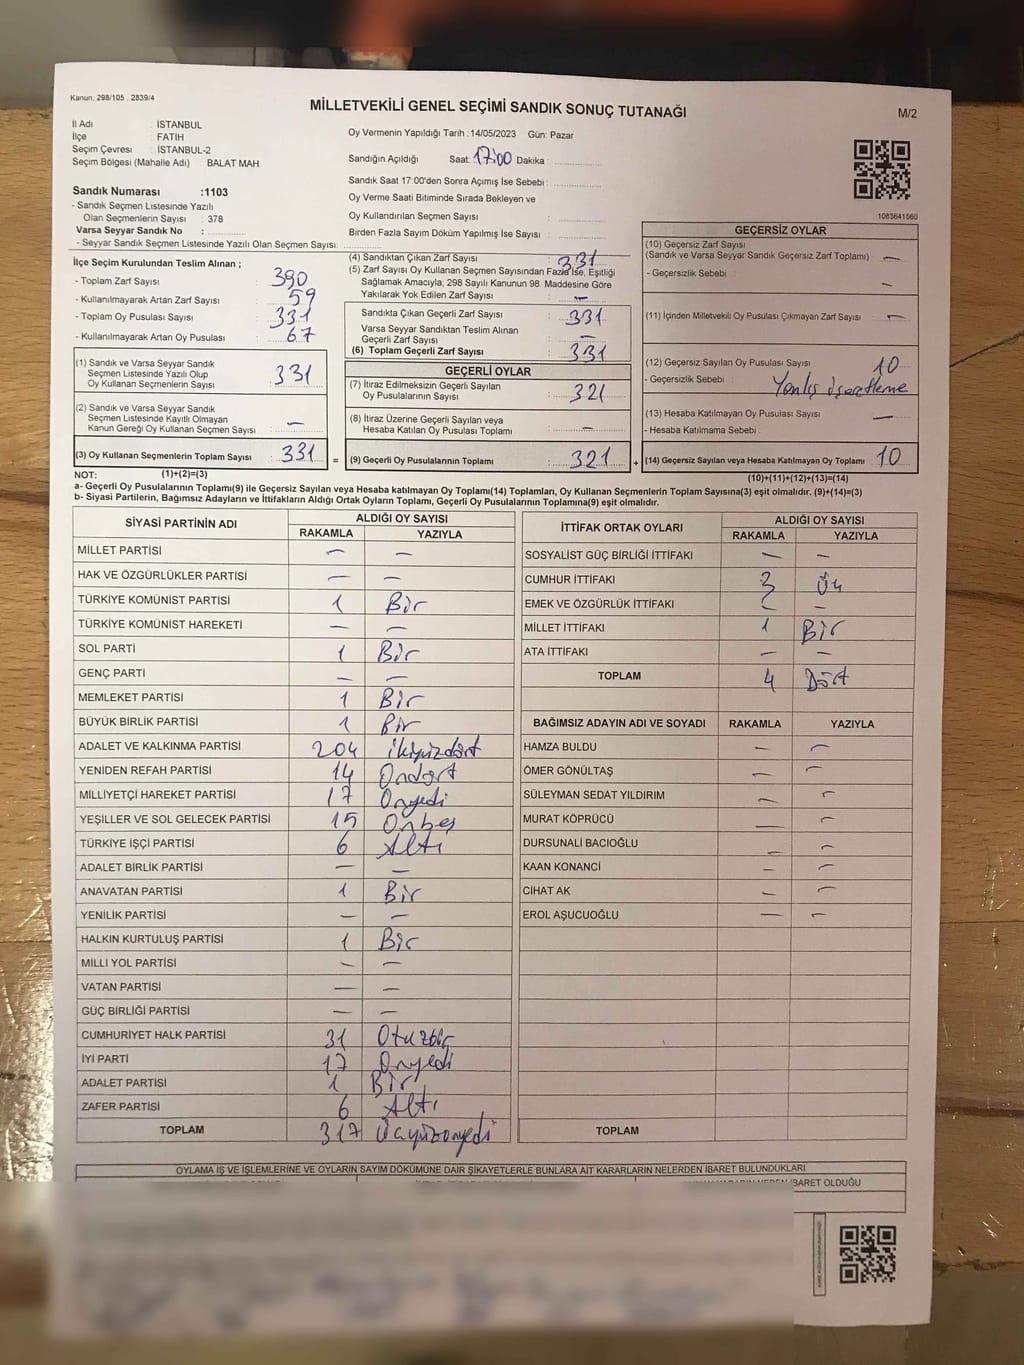 Kanun: 298/105 , 2839/4
MİLLETVEKİLİ GENEL SEÇİMİ SANDIK SONUÇ TUTANAĞI
M/2
İl Adı : İSTANBUL
İlçe : FATİH
Seçim Çevresi : İSTANBUL-2
Seçim Bölgesi (Mahalle Adı) : BALAT MAH.
Sandık Numarası :1103
- Sandık Seçmen Listesinde Yazılı
Olan Seçmenlerin Sayısı : 378
Varsa Seyyar Sandık No :
- Seyyar Sandık Seçmen Listesinde Yazılı Olan Seçmen Sayısı:
Oy Vermenin Yapıldığı Tarih :14/05/2023 Gün: Pazar
Sandığın Açıldığı Saat: 17:00 Dakika :
Sandık Saat 17:00'den Sonra Açımış İse Sebebi :
Oy Verme Saati Bitiminde Sırada Bekleyen ve
Oy Kullandırılan Seçmen Sayısı :
Birden Fazla Sayım Döküm Yapılmış İse Sayısı :
1083641560
İlçe Seçim Kurulundan Teslim Alınan ;
- Toplam Zarf Sayısı : 390
- Kullanılmayarak Artan Zarf Sayısı : 59
- Toplam Oy Pusulası Sayısı : 331
- Kullanılmayarak Artan Oy Pusulası : 67
(1) Sandık ve Varsa Seyyar Sandık
Seçmen Listesinde Yazılı Olup
Oy Kullanan Seçmenlerin Sayısı : 331
(2) Sandık ve Varsa Seyyar Sandık
Seçmen Listesinde Kayıtlı Olmayan
Kanun Gereği Oy Kullanan Seçmen Sayısı : —
(3) Oy Kullanan Seçmenlerin Toplam Sayısı : 331 =
(4) Sandıktan Çıkan Zarf Sayısı : 331
(5) Zarf Sayısı Oy Kullanan Seçmen Sayısından Fazla İse, Eşitliği
Sağlamak Amacıyla; 298 Sayılı Kanunun 98. Maddesine Göre
Yakılarak Yok Edilen Zarf Sayısı : —
Sandıkta Çıkan Geçerli Zarf Sayısı : 331
Varsa Seyyar Sandıktan Teslim Alınan
Geçerli Zarf Sayısı : —
(6) Toplam Geçerli Zarf Sayısı : 331
GEÇERLİ OYLAR
(7) İtiraz Edilmeksizin Geçerli Sayılan
Oy Pusulalarının Sayısı : 321
(8) İtiraz Üzerine Geçerli Sayılan veya
Hesaba Katılan Oy Pusulası Toplamı : —
(9) Geçerli Oy Pusulalarının Toplamı : 321 +
GEÇERSİZ OYLAR
(10) Geçersiz Zarf Sayısı
(Sandık ve Varsa Seyyar Sandık Geçersiz Zarf Toplamı) : —
- Geçersizlik Sebebi : —
(11) İçinden Milletvekili Oy Pusulası Çıkmayan Zarf Sayısı : —
(12) Geçersiz Sayılan Oy Pusulası Sayısı : 10
- Geçersizlik Sebebi : Yanlış işaretleme
(13) Hesaba Katılmayan Oy Pusulası Sayısı : —
- Hesaba Katılmama Sebebi :
(14) Geçersiz Sayılan veya Hesaba Katılmayan Oy Toplamı : 10
NOT: (1)+(2)=(3) (10)+(11)+(12)+(13)=(14)
a- Geçerli Oy Pusulalarının Toplamı(9) ile Geçersiz veya Hesaba katılmayan Oy Toplamı(14) Toplamları, Oy Kullanan Seçmenlerin Toplam Sayısına(3) eşit olmalıdır. (9)+(14)=(3)
b- Siyasi Partilerin, Bağımsız Adayların ve İttifakların Aldığı Ortak Oyların Toplamı, Geçerli Oy Pusulalarının Toplamına(9) eşit olmalıdır.
SİYASİ PARTİNİN ADI ALDIĞI OY SAYISI
RAKAMLA YAZIYLA
MİLLET PARTİSİ — —
HAK VE ÖZGÜRLÜKLER PARTİSİ — —
TÜRKİYE KOMÜNİST PARTİSİ 1 Bir
TÜRKİYE KOMÜNİST HAREKETİ — —
SOL PARTİ 1 Bir
GENÇ PARTİ — —
MEMLEKET PARTİSİ 1 Bir
BÜYÜK BİRLİK PARTİSİ 1 Bir
ADALET VE KALKINMA PARTİSİ 204 ikiyüzdört
YENİDEN REFAH PARTİSİ 14 Ondört
MİLLİYETÇİ HAREKET PARTİSİ 17 Onyedi
YEŞİLLER VE SOL GELECEK PARTİSİ 15 Onbeş
TÜRKİYE İŞÇİ PARTİSİ 6 Altı
ADALET BİRLİK PARTİSİ — —
ANAVATAN PARTİSİ 1 Bir
YENİLİK PARTİSİ — —
HALKIN KURTULUŞ PARTİSİ 1 Bir
MİLLİ YOL PARTİSİ — —
VATAN PARTİSİ — —
GÜÇ BİRLİĞİ PARTİSİ — —
CUMHURİYET HALK PARTİSİ 31 Otuzbir
İYİ PARTİ 17 Onyedi
ADALET PARTİSİ 1 Bir
ZAFER PARTİSİ 6 Altı
TOPLAM 317 Üçyüzonyedi
İTTİFAK ORTAK OYLARI ALDIĞI OY SAYISI
RAKAMLA YAZIYLA
SOSYALİST GÜÇ BİRLİĞİ İTTİFAKI — —
CUMHUR İTTİFAKI 3 Üç
EMEK VE ÖZGÜRLÜK İTTİFAKI — —
MİLLET İTTİFAKI 1 Bir
ATA İTTİFAKI — —
TOPLAM 4 Dört
BAĞIMSIZ ADAYIN ADI VE SOYADI RAKAMLA YAZIYLA
HAMZA BULDU — —
ÖMER GÖNÜLTAŞ — —
SÜLEYMAN SEDAT YILDIRIM — —
MURAT KÖPRÜCÜ — —
DURSUNALİ BACIOĞLU — —
KAAN KONANCİ — —
CİHAT AK — —
EROL AŞUCUOĞLU — —
TOPLAM
OYLAMA İŞ VE İŞLEMLERİNE VE OYLARIN SAYIM DÖKÜMÜNE DAİR ŞİKAYETLERLE BUNLARA AİT KARARLARIN NELERDEN İBARET BULUNDUKLARI
İBARET OLDUĞU